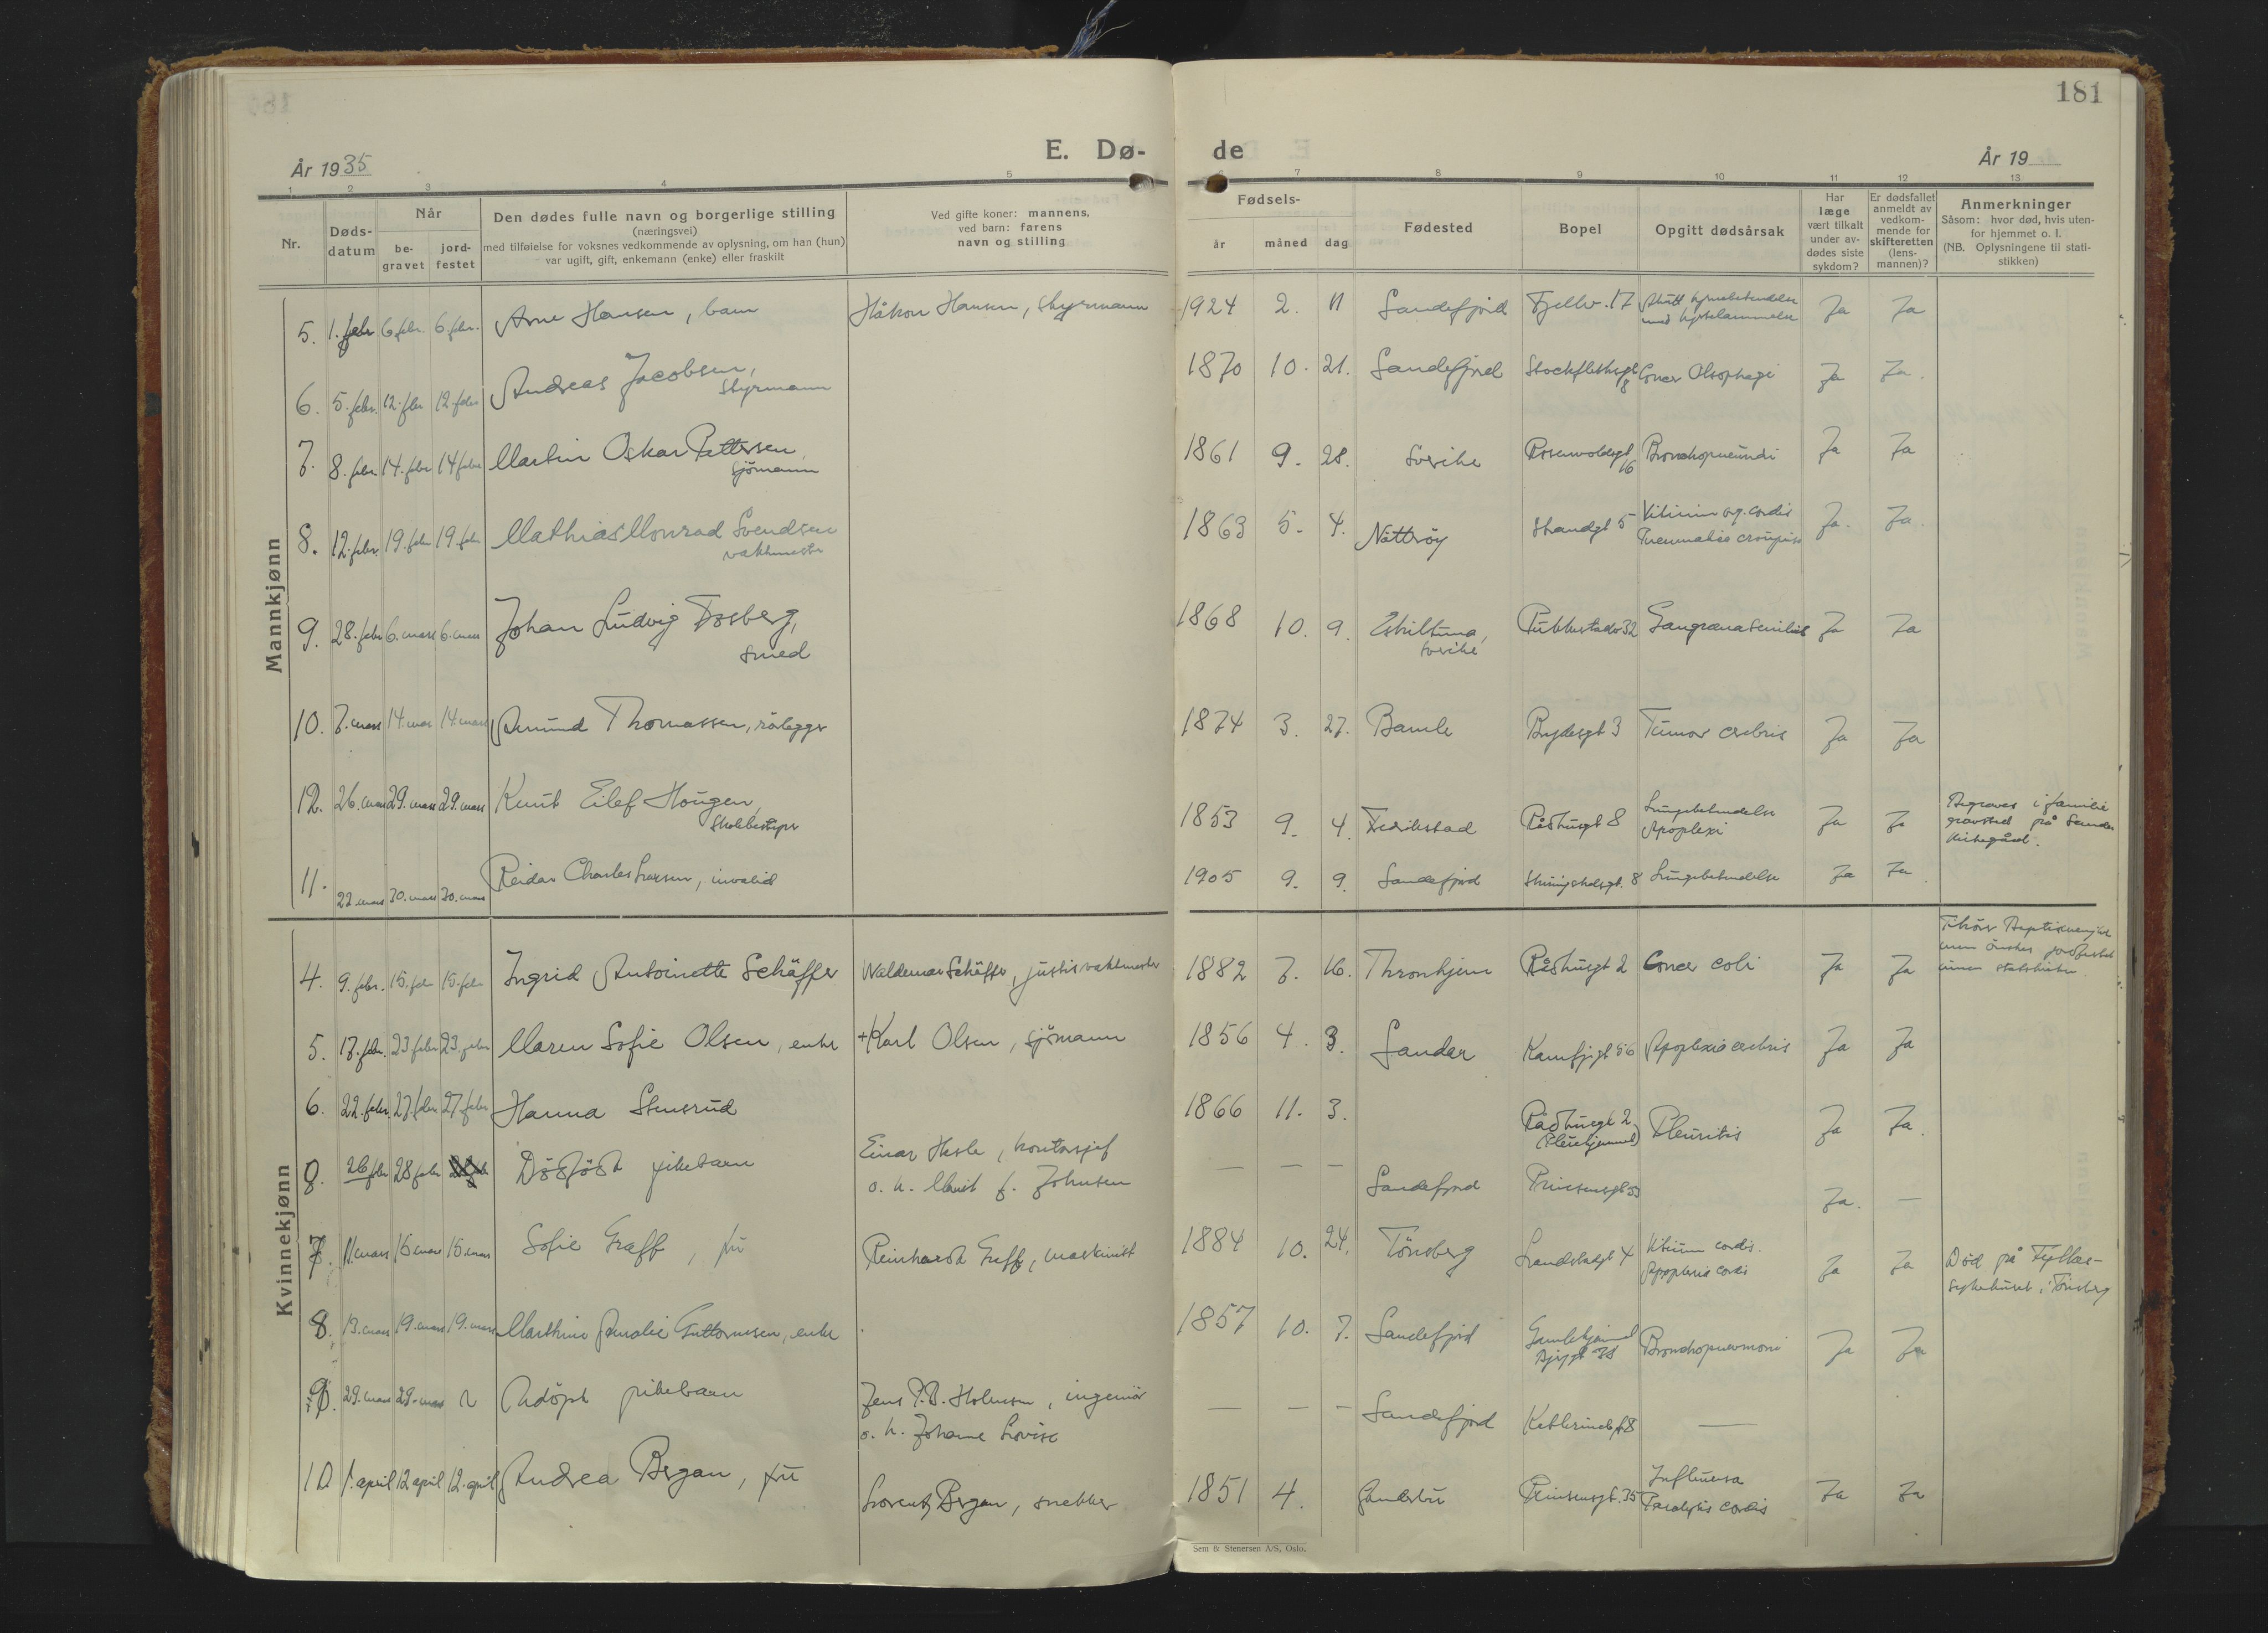 181
E. Dø- de
År 1935
År 19
1 2 3 4 5 6 7 8 9 10 11 12 13
Nr.
Døds-
datum
Når
be-
gravet
jord-
festet
Den dødes fulle navn og borgerlige stilling
(næringsvei)
med tilføielse for voksnes vedkommende av oplysning, om han (hun)
var ugift, gift, enkemann (enke) eller fraskilt
Ved gifte koner: mannens,
ved barn: farens
navn og stilling
Fødsels-
år måned dag
Fødested
Bopel
Opgitt dødsårsak
Har
læge
vært tilkalt
under av-
dødes siste
sykdom?
Er dødsfallet
anmeldt av
vedkom-
mende for
skifteretten
(lens-
mannen)?
Anmerkninger
Såsom: hvor død, hvis uten-
for hjemmet o. l.
(NB. Oplysningene til stati-
stikken)
Mannkjønn
5. 1. febr 6 febr. 6. febr. Arne Hansen, barn Håkon Hansen, styrmann 1924 2. 11 Sandefjord Fjellv. 17 Ja Ja
6. 5. febr. 12. febr 12. febr Andreas Jacobsen, 1870 10. 21. Sandefjord Cancer Ja Ja.
styrmann 8
7. 8. febr. 14. febr 14 febr Martin Oskar Pettersen, 1861 9. 28. Sverike Bronchopneumoni Ja Ja
sjömann 16
8. 12. febr. 19. febr 19. febr Mathias Monrad Svendsen 1863 5. 4. Nöttröy Strandgt 5 Vitium org. cordis Ja. Ja
vaktmester
9. 28. febr 6. mars 6. mars Johan Ludvig Fosberg, 1868 10. 9. Eskiltuna, Pukkestadv 32 Gangræna senilis Ja Ja
smed Sverike
10. 7. mars 14. mars 14. mars Amund Thomassen, rörlegger 1874 3. 27. Bamle Brydesgt 3 Tumor cerebris Ja Ja
12. 26. mars 29. mars 29. mars Knut Eilef Hougen, 1853 9. 4. Fredrikstad Rådhusgt 8 Lungebetendelse Ja Ja Begraves i familie
skolebestyrer Apoplexi gravsted på Sandar
kirkegård.
11. 22. mars 30. mars 30. mars Reidar Charles Larsen, invalid 1905 9. 9. Sandefjord 8 Lungebetendelse Ja Ja
Kvinnekjønn
4. 9. febr. 15. febr 15. febr Ingrid Antoinette Schäffer Waldemar Schäffer, justisvaktmester 1882 7. 16. Thronhjem Rådhusgt 2 Cancer coli Ja Ja
5. 17. febr. 23 febr 23. febr Maren Sofie Olsen, enke +Karl Olsen, sjömann 1856 4. 3. Sandar Kamfjgt 56 Apoplexia cerebris Ja Ja
6. 22. febr. 27. febr 27. febr Hanna Stensrud 1866 11. 3. Rådhusgt 2 Pleuritis Ja Ja.
(Pleiehjemmet)
26 febr 28 febr Dödfödt pikebarn Einar Hesle, kontorsjef — — — Sandefjord Prinsensgt 53 Ja. —
o. h. Marit f. Johnsen
7. 11. mars 15 mars 15. mars Sofie Graff, fru Reinhardt Graff, maskinist 1884 10. 24. Tönsberg Landstadsgt 4 Vitium cordis. Ja Ja Död på Fylkes-
Apoplexia cordis sykehuset i Tönsberg
8. 13. mars 19. mars 19. mars Marthine Amalie Guttormsen, enke 1857 10. 7. Sandefjord Gamlehjemmet Bronchopneumoni Ja Ja
9. 29. mars 29. mars Udöpt pikebarn Jens P.B. Holmsen, ingeniör — — — Sandefjord —
o. h. Johanne Lovise
10. 1. april 12 april 12. april Andrea Bergan, fru Lorentz Bergan, snekker 1851 4. Prinsensgt. 35 Influensa Ja Ja
Paralysis cordis
Sem & Stenersen A/S, Oslo.